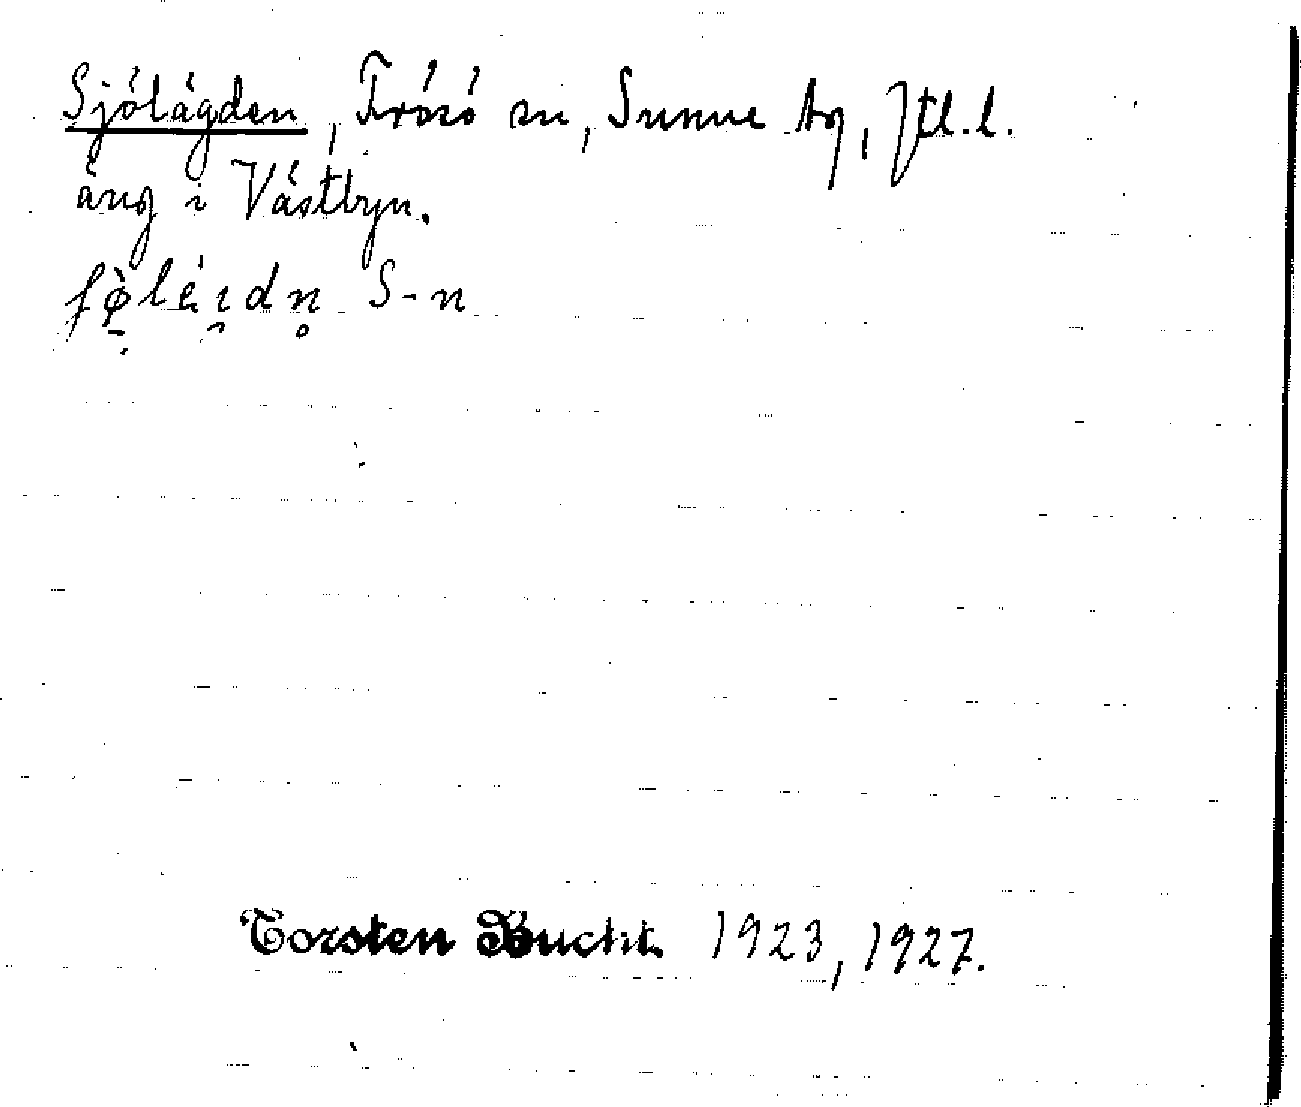 Sjölägden, Frösö sn, Sunne tg, Jtl.l.
äng i Västbyn.
S-n
Torsten Bucht. 1923, 1927.